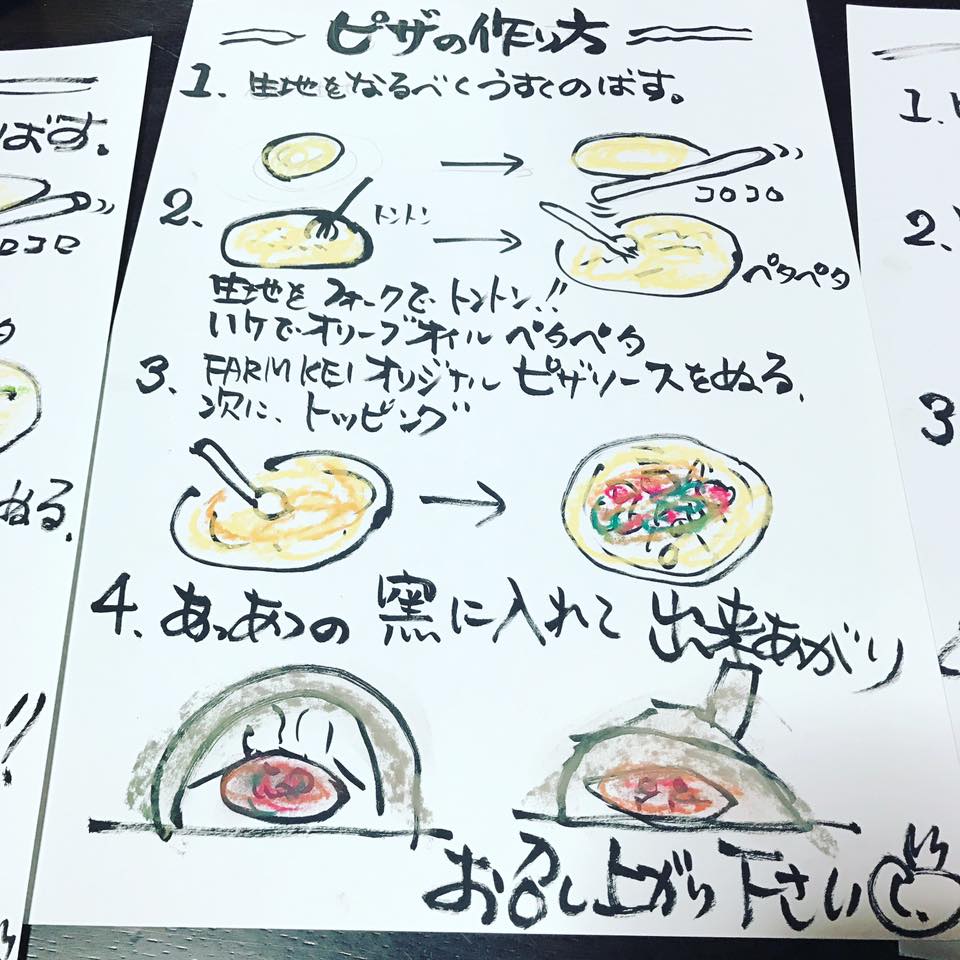 ピザの作り方
1. 生地をなるべくうすくのばす。
コロコロ
2.
トントン
ペタペタ
生地をフォークでトントン!!
ハケでオリーブオイル ペタペタ
3. FARM KEI オリジナル ピザソースをぬる.
次に、トッピング
4. あっあつの 窯に入れて 出来あがり
お召し上がり下さい
ばす。
コロコロ
ぬる.
!!
1.
2.
3